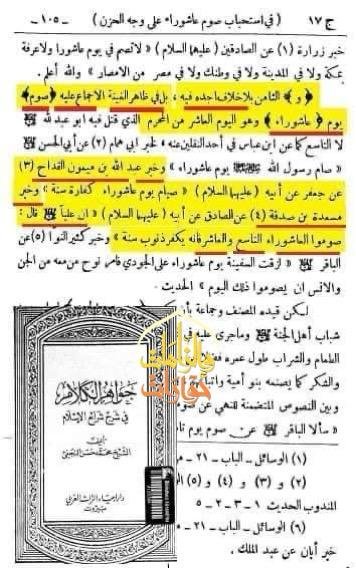 ج ١٧ ( في استحباب صوم عاشوراء على وجه الحزن ) ـ ١٠٥ ـ
خبر زرارة (١) عن الصادقين ( عليهما السلام ) « لا تصم في يوم عاشورا ولا عرفة
بمكة ولا في المدينة ولا في وطنك ولا في مصر من الامصار » والله أعلم .
﴿ و ﴾ الثامن بلا خلاف أجده فيه ، بل في ظاهر الغنية الاجماع عليه ﴿ صوم
يوم ﴿ عاشوراء ﴾ وهو اليوم العاشر من المحرم الذي قتل فيه ابو عبد الله
لا التاسع كما عن ابن عباس في أحد النقلين عنه ، لخبر ابي همام (٢) عن أبي الحسن
« صام رسول الله يوم عاشوراء » وخبر عبد الله بن ميمون القداح (٣)
عن جعفر عن أبيه ( عليهما السلام ) « صيام يوم عاشوراء كفارة سنة » وخبر
مسعدة بن صدقة (٤) عن الصادق عن أبيه ( عليهما السلام ) « ان علياً قال :
صوموا العاشوراء التاسع والعاشر فانه يكفر ذنوب سنة » وخبر كثير النوا (٥) عن
الباقر « لزقت السفينة يوم عاشوراء على الجودي فأمر نوح من معه من الجن
والانس ان يصوموا ذلك اليوم » الحديث .
لكن قيده المصنف وجماعة بأن
شباب أهل الجنة وما جرى عليه في
الطعام والشراب طول عمره فضلا
والشكر كما يصنعه بنو أمية واتباعهم
وبين النصوص المتضمنة للنهي عن صو
« سألا الباقر عن صوم يوم تا
(١) الوسائل ـ الباب ـ ٢١ ـ
(٢) و (٣) و (٤) و (٥)
المندوب الحديث ١ ـ ٣ ـ ٢ ـ ٥
(٦) الوسائل ـ الباب ـ ٢١ ـ
خبر أبان عن عبد الملك .
جواهر الكلام
في شرح شرائع الإسلام
تأليف
الشيخ محمد حسن النجفي
دار إحياء التراث العربي
بيروت